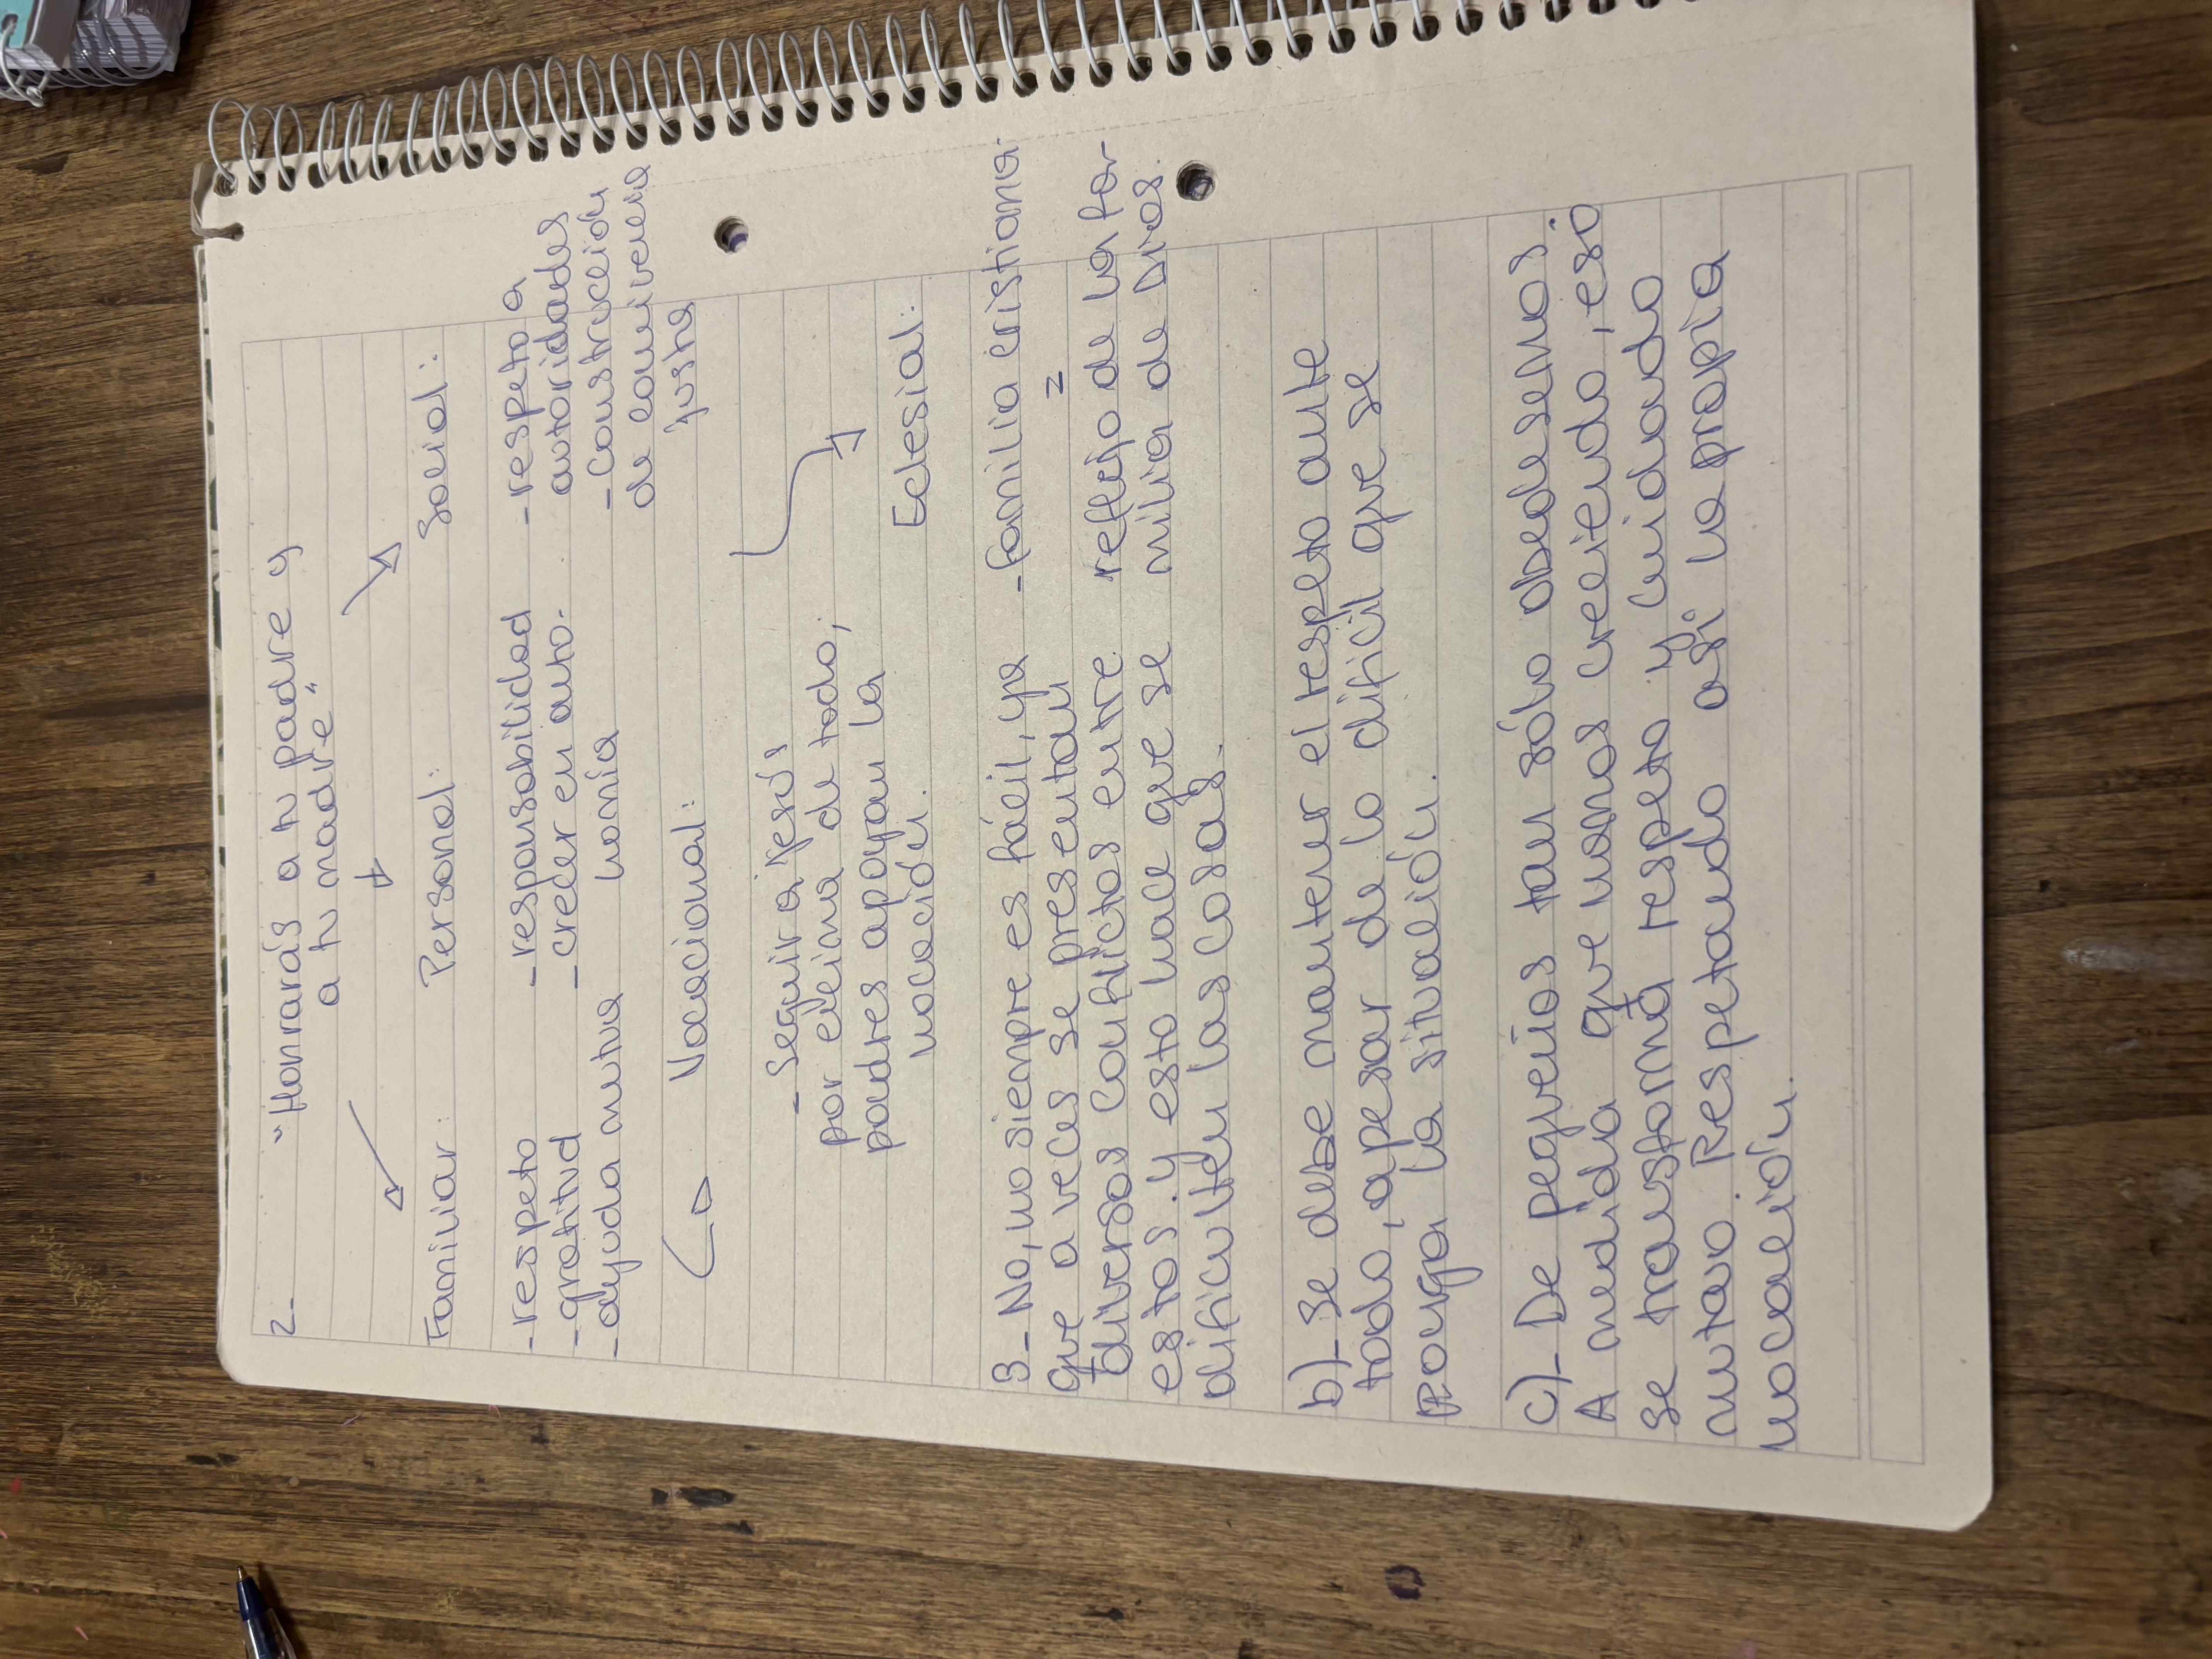 2- "Honrarás a tu padre y
a tu madre"
Familiar: Personal: Social:
-respeto -responsabilidad -respeto a
-gratitud -crecer en auto- autoridades
-ayuda mutua nomía -construcción
de convivencia
justa
Vocacional:
- Seguir a Jesús
por encima de todo;
padres apoyan la
vocación.
Eclesial:
-familia cristiana
=
reflejo de la fa-
milia de Dios.
3- No, no siempre es fácil, ya
que a veces se presentan
diversos conflictos entre
estos. Y esto hace que se
dificulten las cosas.
b)- Se debe mantener el respeto ante
todo, apesar de lo dificil que se
ponga la situación.
c)- De pequeños tan sólo obedesemos.
A medida que vamos creciendo, eso
se transforma respeto y cuidado
mutuo. Respetando asi la propia
vocación.